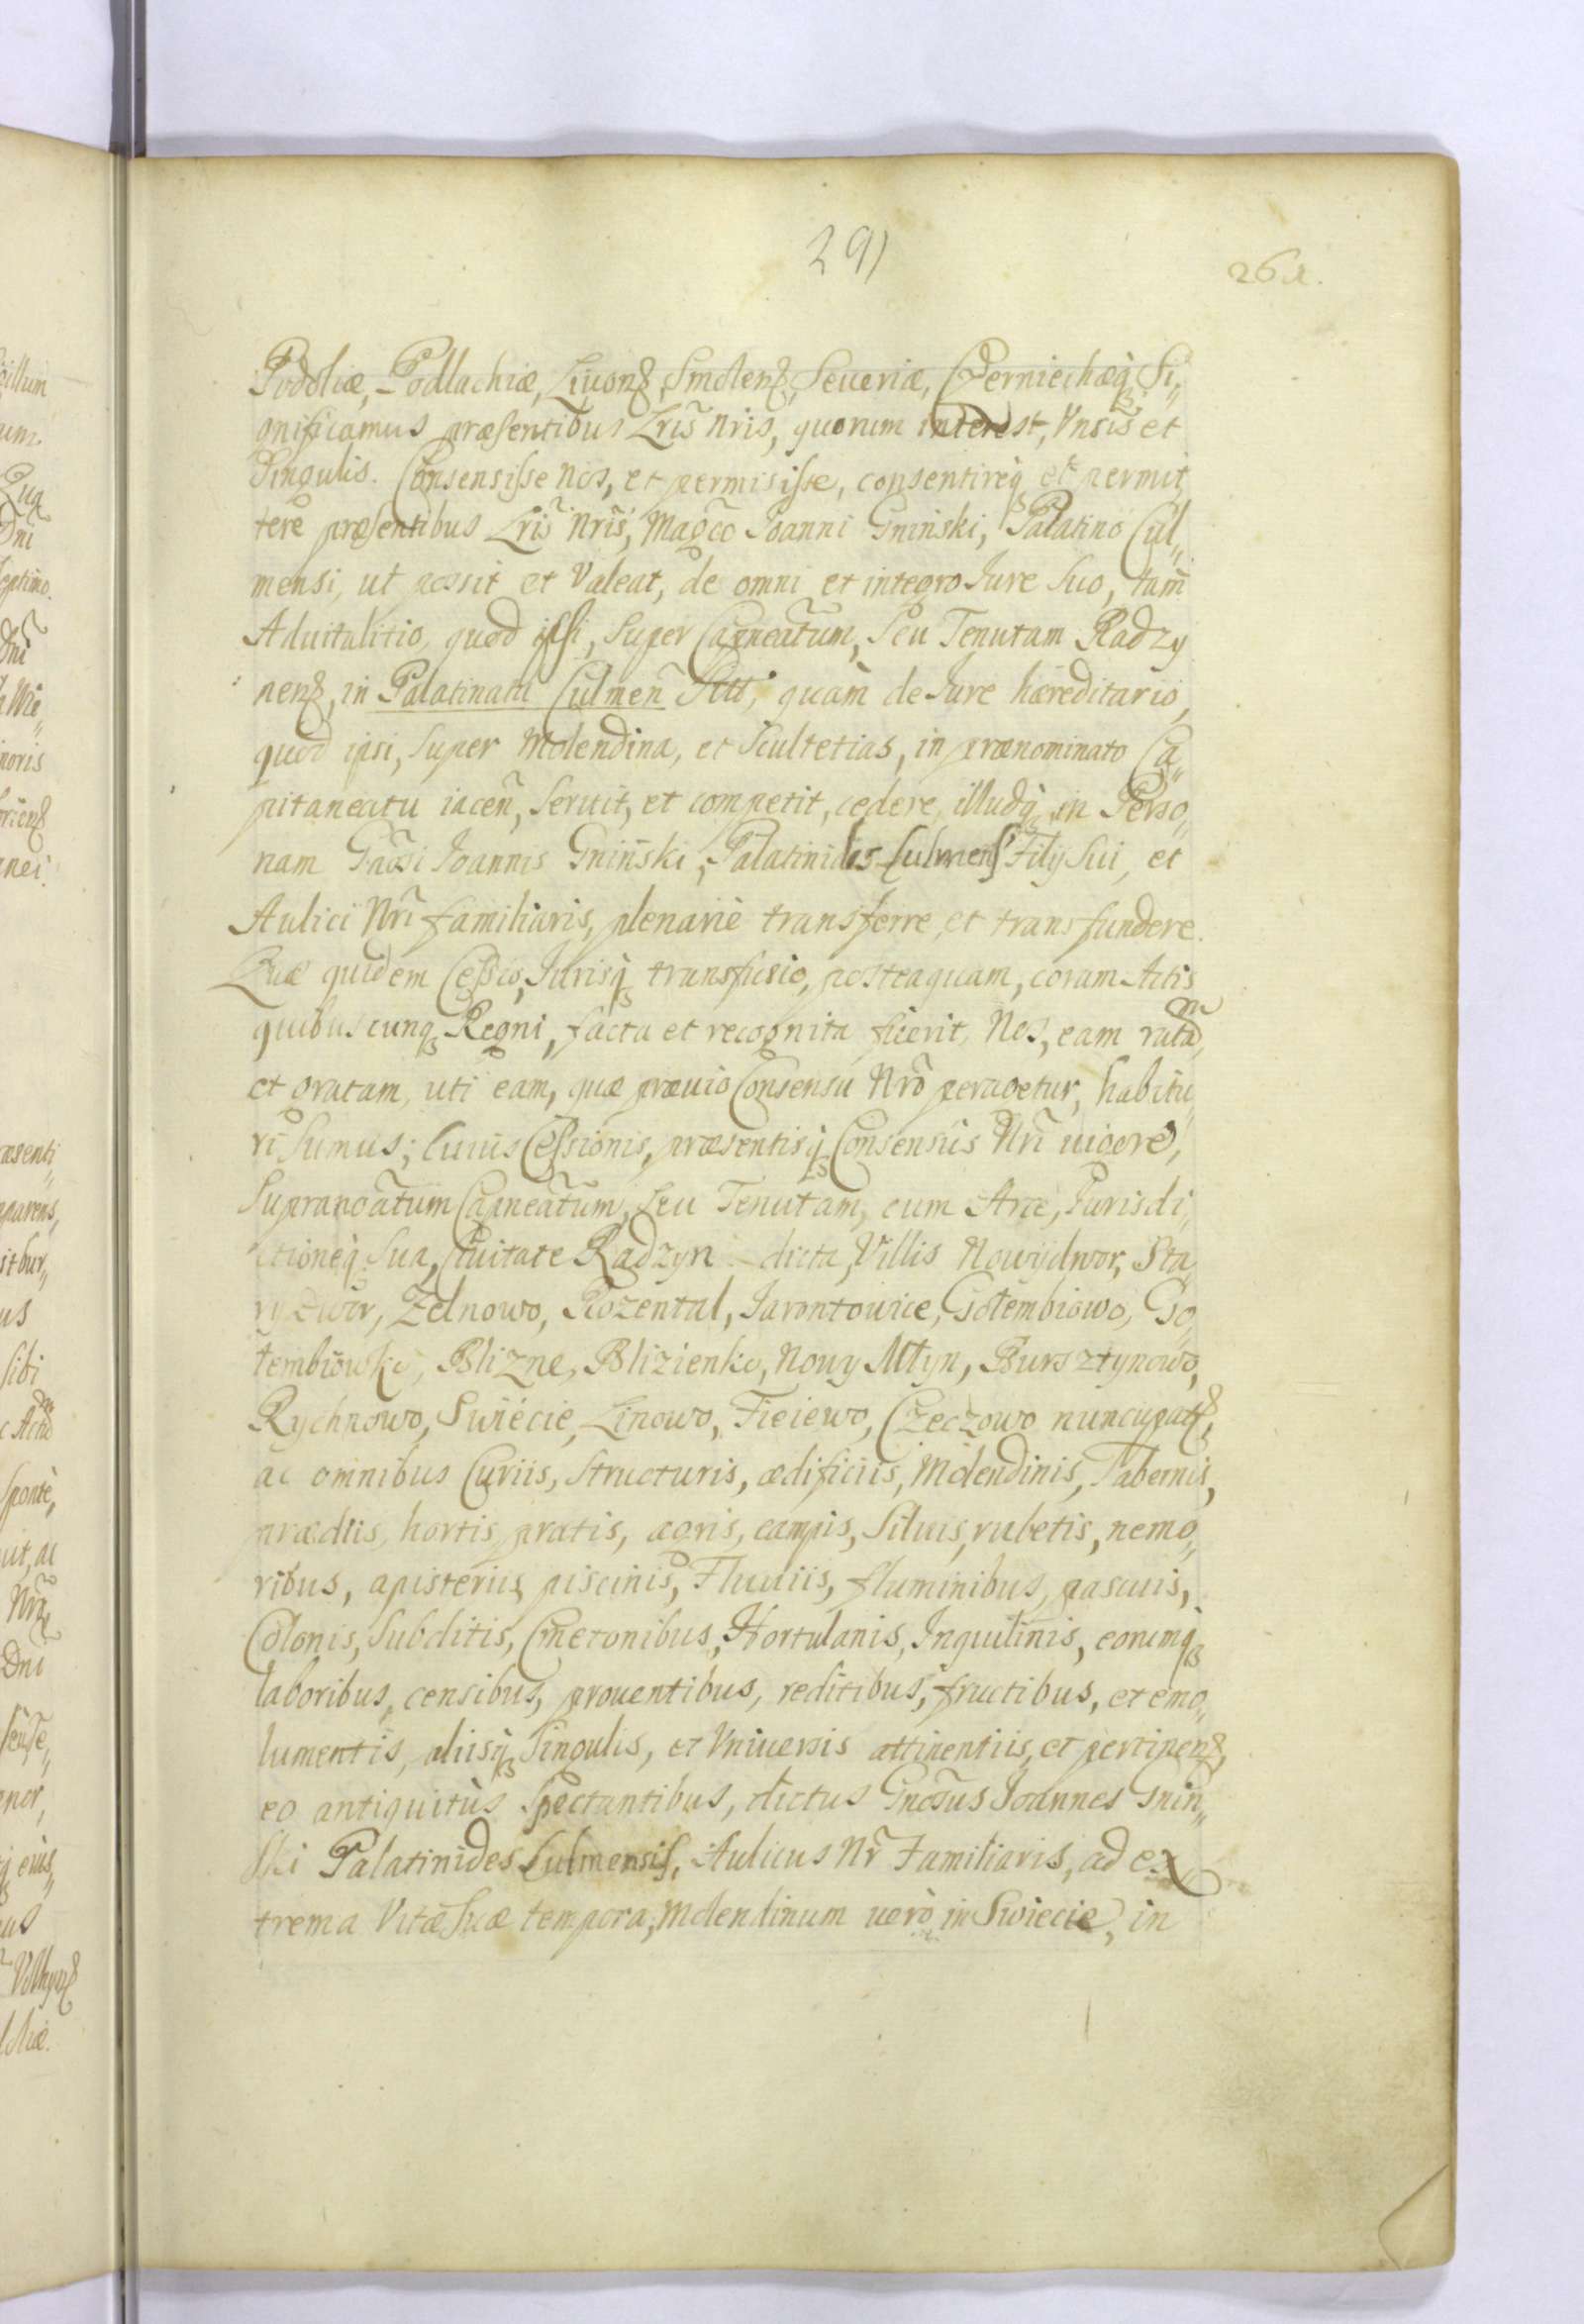 291
261.
Podoliæ, Podlachiæ, Liuonȝ, Smolenȝ, Seueriæ, Czerniechæqȝ Si„
gnificamus præsentibus Lris Nris, quorum interest, Vnsis et
Singulis. Consensisse Nos, et permisisse, consentireqȝ et permit„
tere præsentibus Lris Nris, Magco Ioanni Gninski, Palatino Cul„
mensi, ut possit et Valeat, de omni et integro Iure Suo, tam
Aduitalitio, quod ipsi, Super Capneatum, Seu Tenutam Radzy
nenȝ, in Palatinatu Culmen Sitt, quàm de Iure hæreditario,
quod ipsi, Super Molendina, et Scultetias, in prænominato Ca„
pitaneatu iacen, Seruit, et competit, cedere, illudqȝ in Perso„
nam Gnosi Ioannis Gninski, Palatinidis Culmens Filij Sui, et
Aulici Nri familiaris, plenariè transferre, et transfundere.
Quæ quidem Cessio, Iurisqȝ transfusio, posteaquam, coram Actis
quibuscunqȝ Regni, facta et recognita fuerit, Nos, eam ratam
et gratam, uti eam, quæ præuio Consensu Nro peragetur, habitu„
ri Sumus; Cuius Cessionis, præsentisqȝ Consensus Nri uigore,
Supranoatum Capneatum, Seu Tenutam, cum Arce, Iurisdi„
ctioneqȝ Sua, Ciuitate Radzyn dicta, Villis Nowydwor, Sta„
ry dwor, Zelnowo, Rozental, Iarontowice, Gołembiowo, Go„
łembiowko, Blizne, Blizienko, Nowy Młyn, Bursztynowo,
Rychnowo, Swiécie, Linowo, Fieiewo, Czeczowo nuncupatȝ,
ac omnibus Curiis, Structuris, ædificiis, Molendinis, Tabernis,
prædiis, hortis, pratis, agris, campis, Siluis, rubetis, nemo„
ribus, apisteriis, piscinis, Fluuiis, fluminibus, pascuis,
Colonis, Subditis, Cmetonibus, Hortulanis, Inquilinis, eorumqȝ
laboribus, censibus, prouentibus, reditibus, fructibus, et emo„
lumentis, aliisqȝ Singulis, et Vniuersis attinentiis, et pertinenȝ,
eo antiquitùs Spectantibus, dictus Gnosus Ioannes Gnin„
ski Palatinides Culmensis, Aulicus Nr Familiaris, ad ex
trema Vitæ Suæ tempora, Molendinum uerò in Swiecie, in